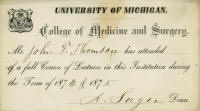 UNIVERSITY OF MICHIGAN.
College of Medicine and Surgery.
Mr. John F. Thomson has attended
a full Course of Lectures in this Institution during
the Term of 187 & 187
A. Sager Dean.